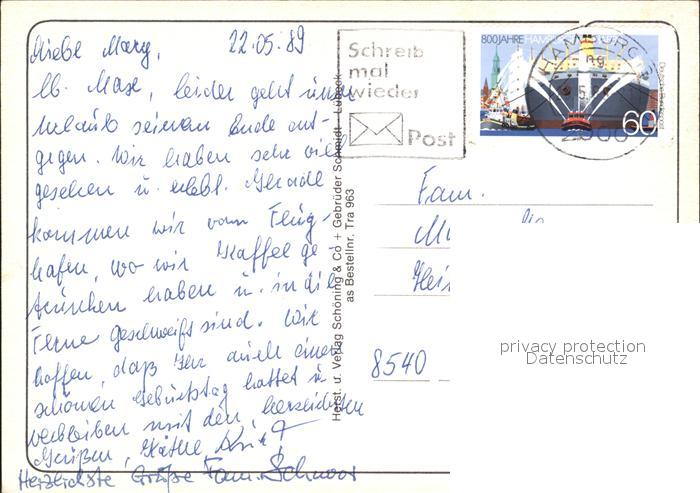 22.05.89
Liebe Mary,
lb. Maxe, leider geht unser
Urlaub seinem Ende ent-
gegen. Wir haben sehr viel
gesehen u. erlebt. Gerade
kommen wir vom Flug-
hafen, wo wir Kaffee ge
trunken haben u. in die
Ferne geschweift sind. Wir
hoffen, daß Ihr auch einen
schönen Geburtstag hattet u.
verbleiben mit den herzlichsten
Grüßen, Käthe
Herzlichste Grüße Fam. Schnoor
Schreib
mal
wieder
Post
800 JAHRE HAMBURGER
HAMBURG
2000
60
Deutsche Bundespost
Fam.
8540
Herst. u. Verlag Schöning & Co + Gebrüder Schmidt - Lübeck
as Bestellnr. Tra 963
privacy protection
Datenschutz